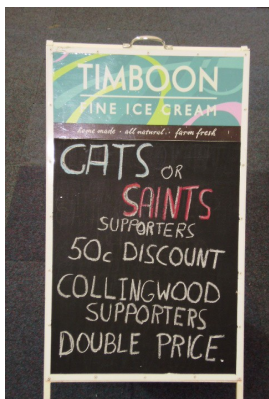 TIMBOON
FINE ICE CREAM
home made · all natural · farm fresh
CATS OR
SAINTS
SUPPORTERS
50c DISCOUNT
COLLINGWOOD
SUPPORTERS
DOUBLE PRICE.